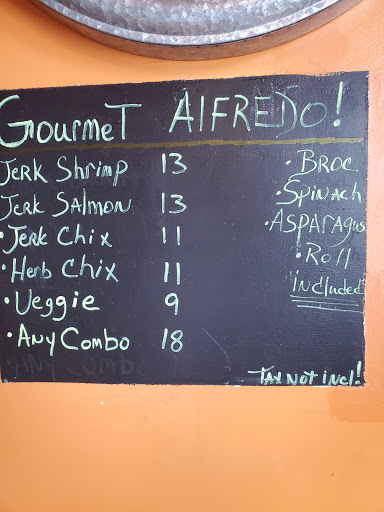 Gourmet Alfredo!
Jerk Shrimp 13
Jerk Salmon 13
• Jerk Chix 11
• Herb Chix 11
• Veggie 9
• Any Combo 18
Any Combo
• Broc
• Spinach
• Asparagus
• Roll
included
Tax not incl!